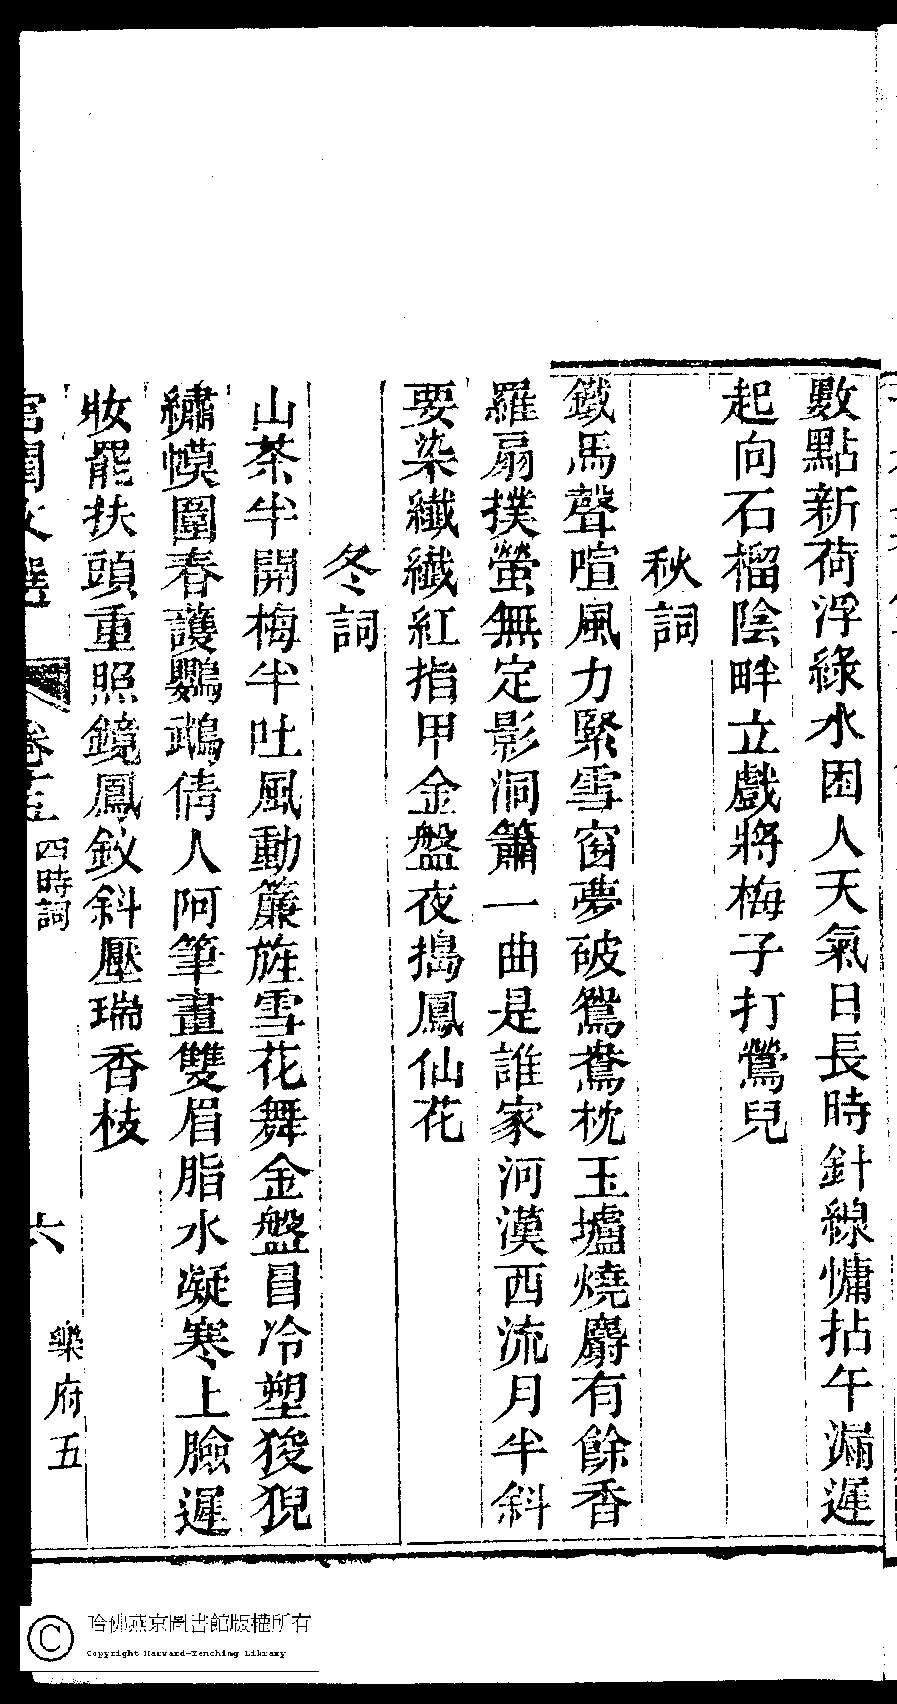 數點新荷浮綠水困人天氣日長時針線慵拈午漏遲
起向石榴陰畔立戲將梅子打鶯兒
秋詞
鐵馬聲喧風力緊雪窗夢破鴛鴦枕玉壚燒麝有餘香
羅扇撲螢無定影洞簫一曲是誰家河漢西流月半斜
要染纖纖紅指甲金盤夜搗鳳仙花
冬詞
山茶半開梅半吐風動簾旌雪花舞金盤冒冷塑狻猊
繡幙圍春護鸚鵡倩人阿筆畫雙眉脂水凝寒上臉遲
妝罷扶頭重照鏡鳳釵斜壓瑞香枝
宮閨文選
卷十五
四時詞
六
樂府五
哈佛燕京圖書館版權所有
Copyright Harvard-Yenching Library